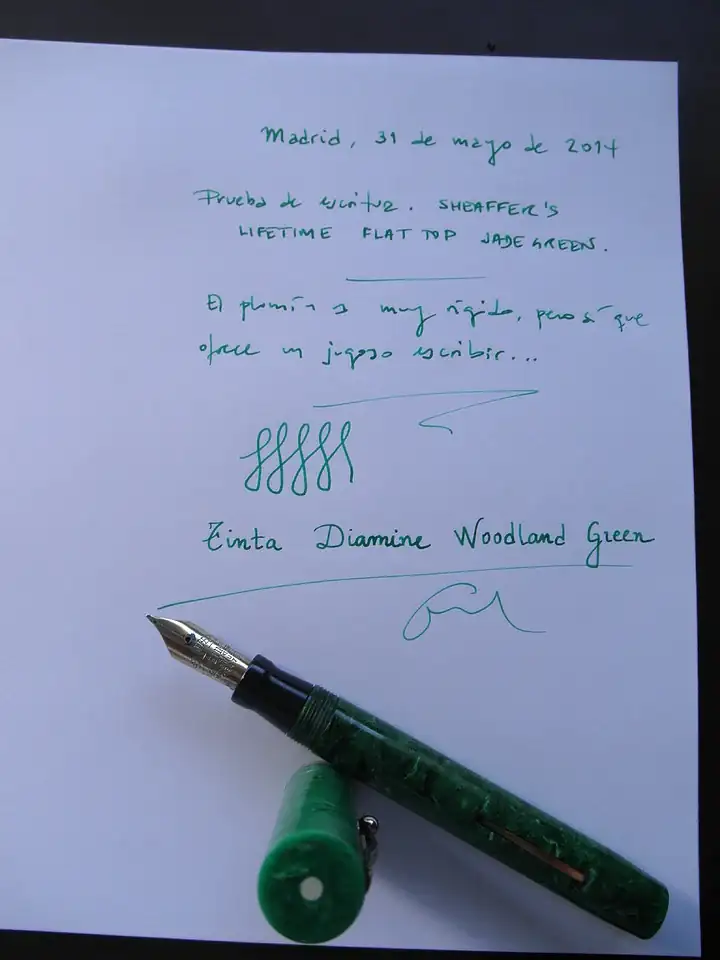 Madrid, 31 de mayo de 2014
Prueba de escritura. SHEAFFER'S
LIFETIME FLAT TOP JADE GREEN.
El plumín es muy rígido, pero sí que
ofrece un jugoso escribir...
Tinta Diamine Woodland Green